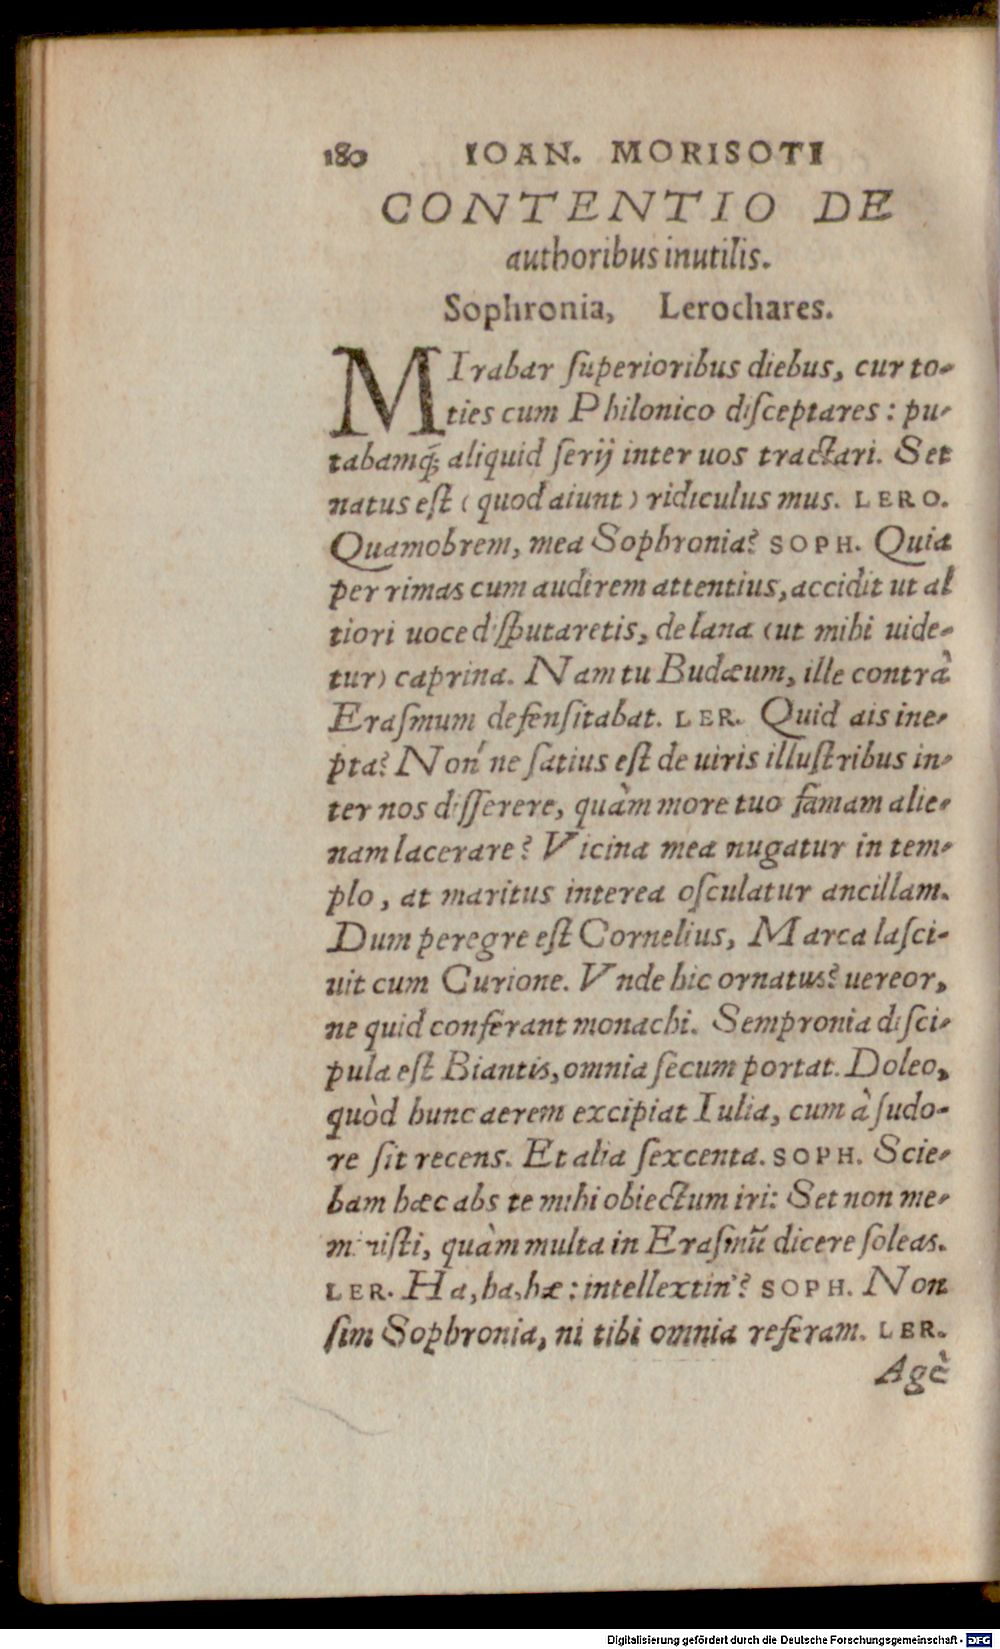 180 IOAN. MORISOTI
CONTENTIO DE
authoribus inutilis.
Sophronia, Lerochares.
MIrabar ſuperioribus diebus, cur to-
ties cum Philonico diſceptares: pu-
tabamq́; aliquid ſerij inter uos tractari. Set
natus eſt (quod aiunt) ridiculus mus. LERO.
Quamobrem, mea Sophronia? SOPH. Quia
per rimas cum audirem attentius, accidit ut al
tiori uoce diſputaretis, de lana (ut mihi uide-
tur) caprina. Nam tu Budæum, ille contrà
Eraſmum defenſitabat. LER. Quid ais ine-
pta? Nón ne ſatius eſt de uiris illuſtribus in-
ter nos diſſerere, quàm more tuo famam alie-
nam lacerare? Vicina mea nugatur in tem-
plo, at maritus interea oſculatur ancillam.
Dum peregre eſt Cornelius, Marca laſci-
uit cum Curione. Vnde hic ornatus? uereor,
ne quid conferant monachi. Sempronia diſci-
pula eſt Biantis, omnia ſecum portat. Doleo,
quòd hunc aerem excipiat Iulia, cum à ſudo-
re ſit recens. Et alia ſexcenta. SOPH. Scie-
bam hæc abs te mihi obiectum iri: Set non me-
miniſti, quàm multa in Eraſmū dicere ſoleas.
LER. Ha, ha, hæ: intellextin'? SOPH. Non
ſim Sophronia, ni tibi omnia referam. LER.
Agè
Digitalisierung gefördert durch die Deutsche Forschungsgemeinschaft - DFG